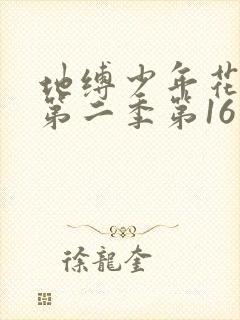 地缚少年花
第二季第16
徐龍奎